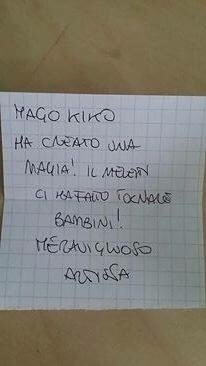 MAGO KIKO
HA CREATO UNA
MAGIA! IL MELETTI
CI HA FATTO TORNARE
BAMBINI!
MERAVIGLIOSO
ARTISTA